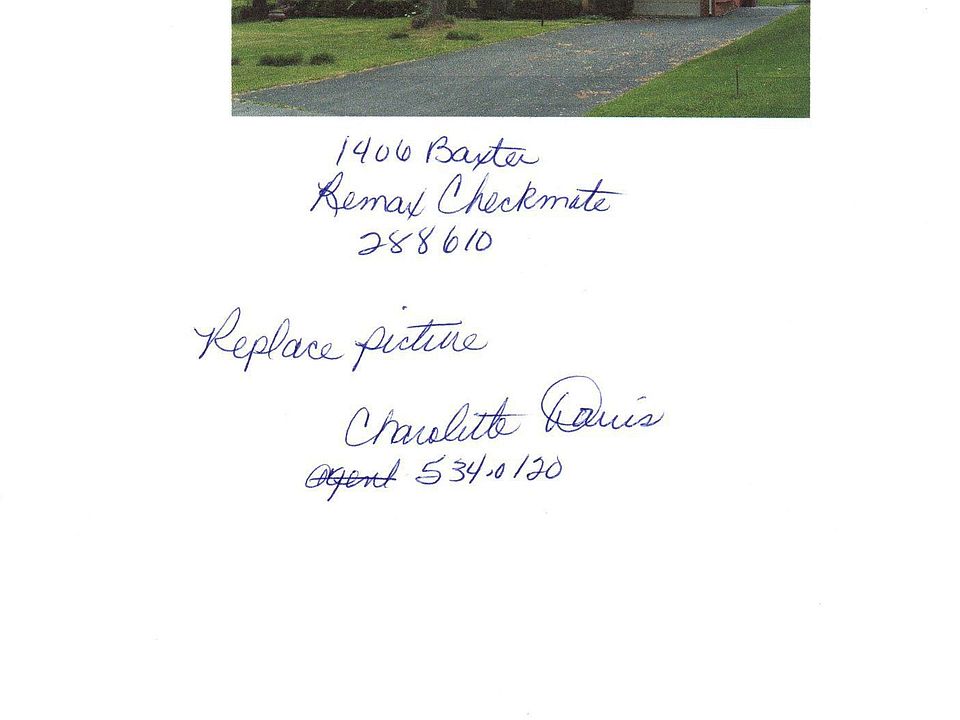 1406 Baxter
Remax Checkmate
288610
Replace picture
Charolitte Davis
agent 534.0120